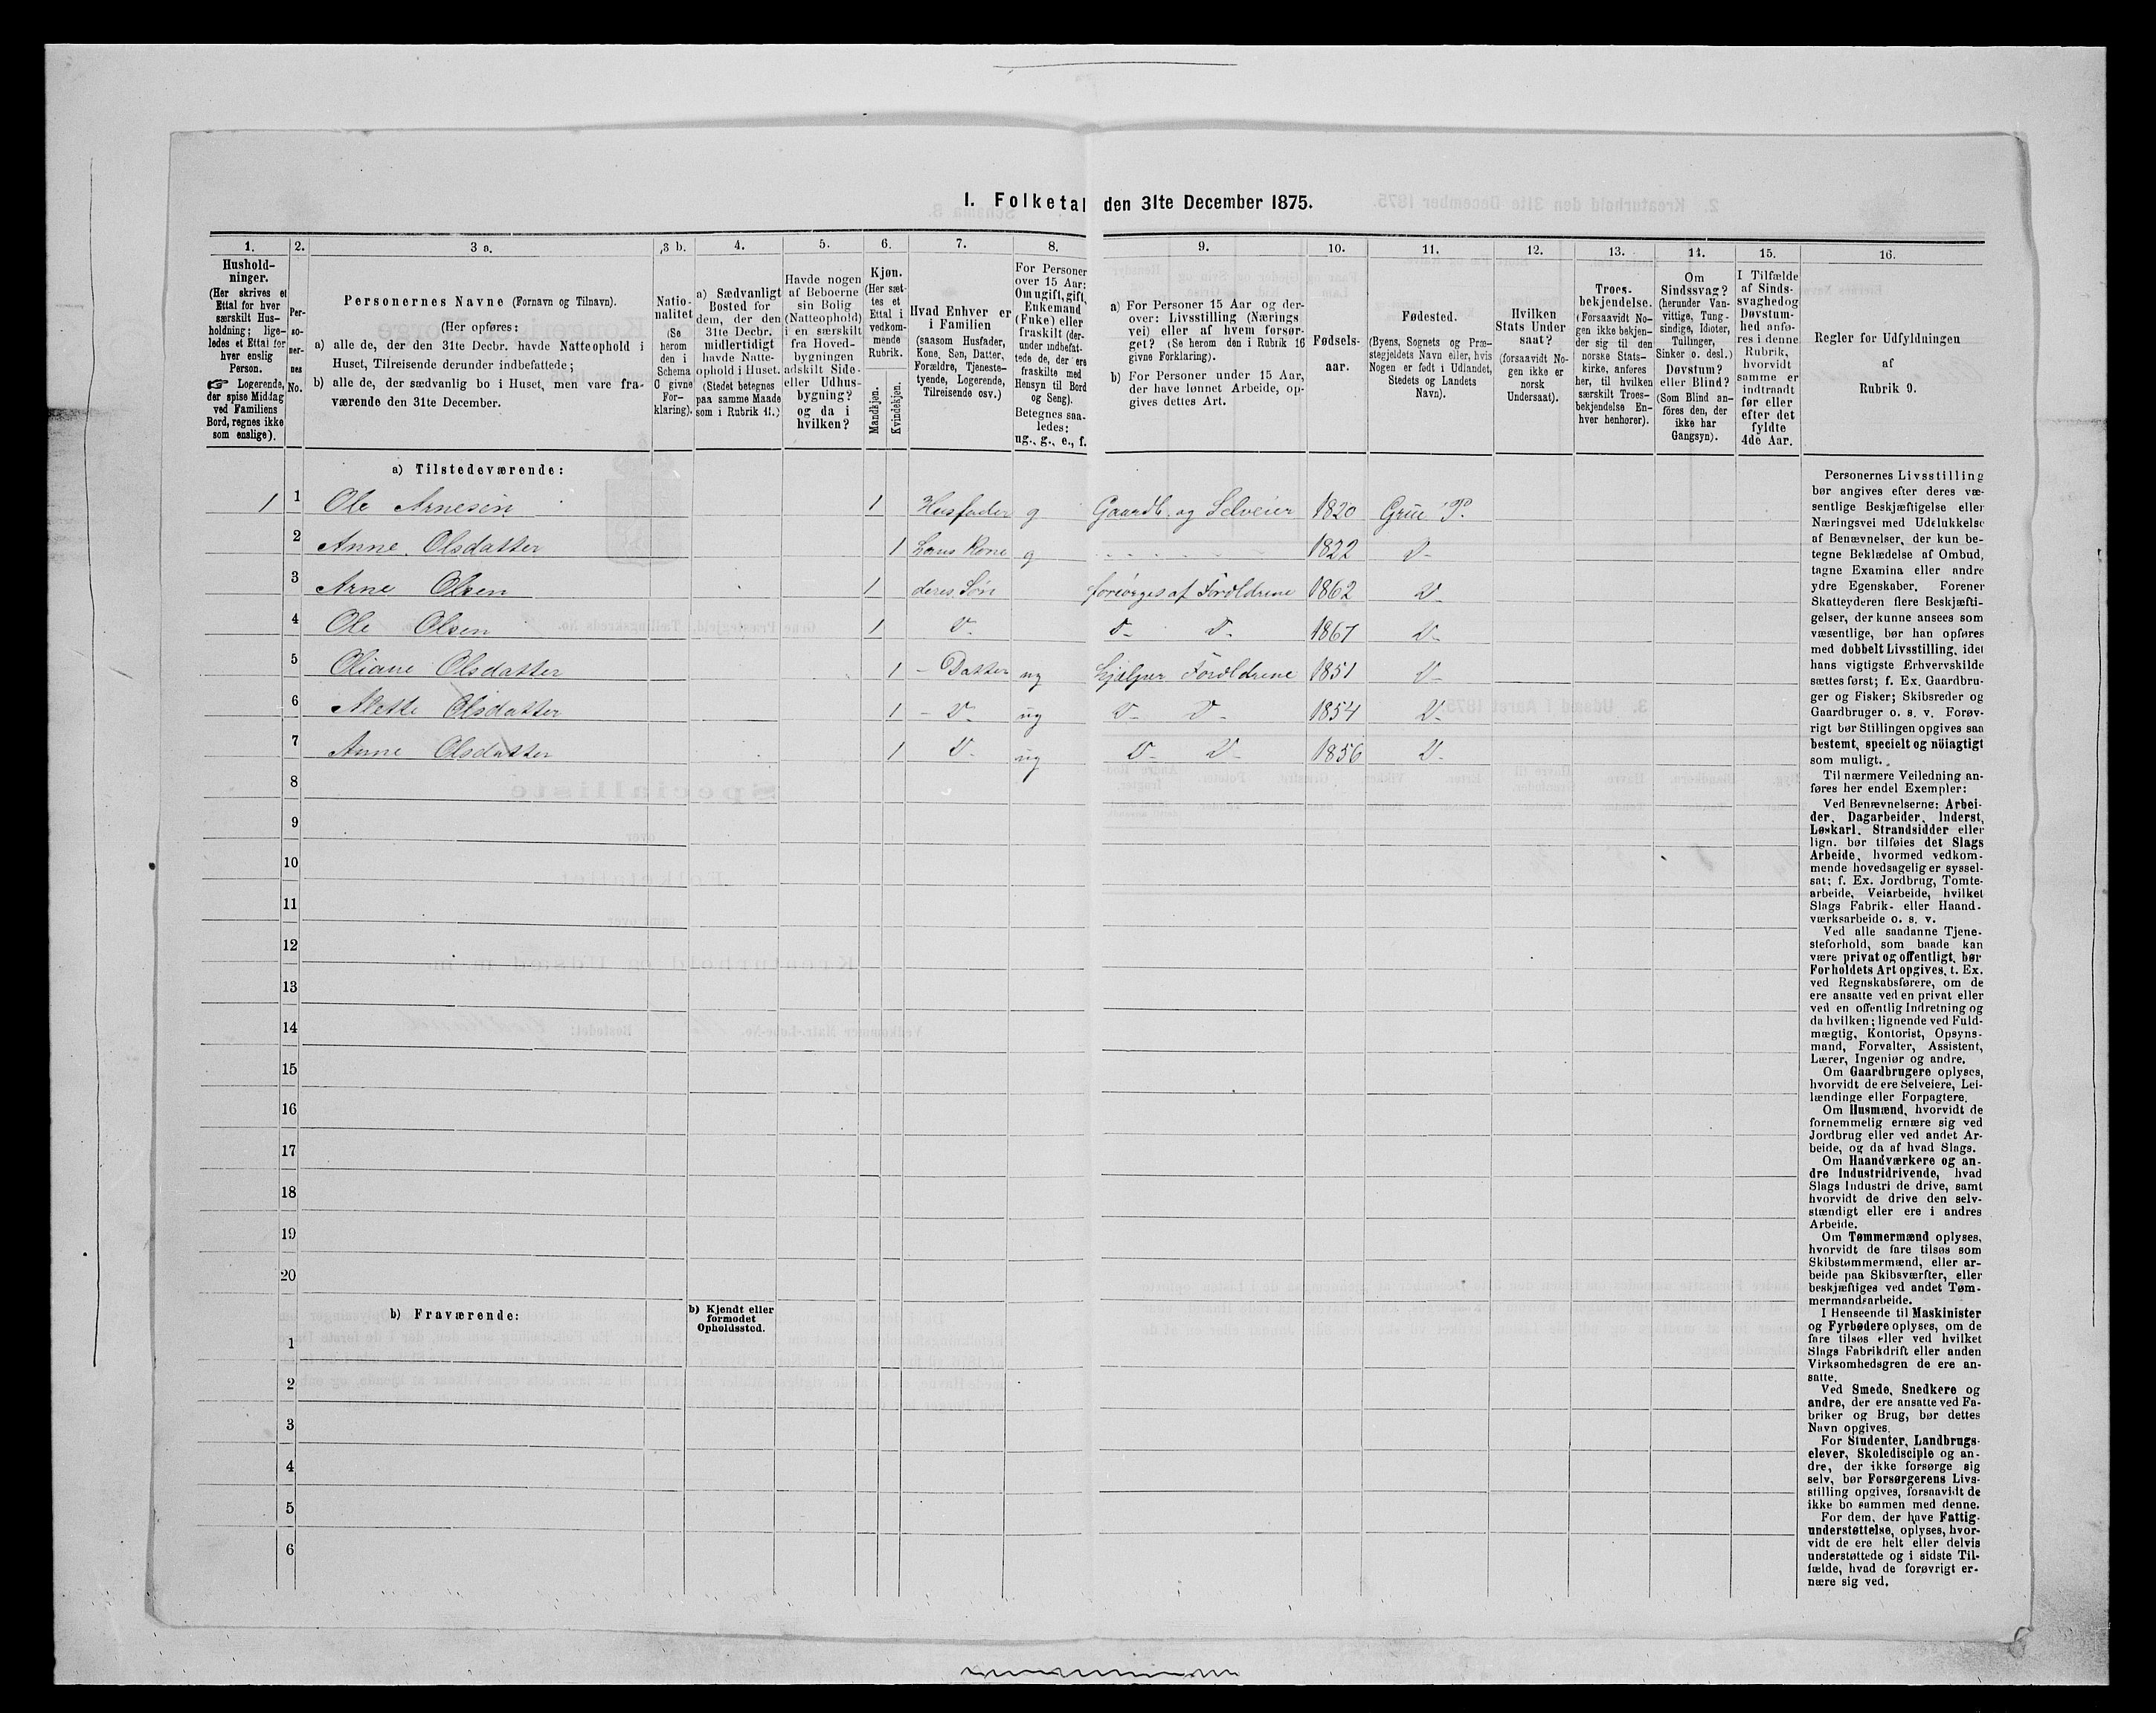 I. Folketal den 31te December 1875.
1. 2. 3 a. 3 b. 4. 5. 6. 7. 8. 9. 10. 11. 12. 13. 14. 15. 16.
Hushold-
ninger.
(Her skrives et
Ettal for hver
særskilt Hus-
holdning; lige-
ledes et Ettal for
hver enslig
Person.
☞ Logerende,
der spise Middag
ved Familiens
Bord, regnes ikke
som enslige).
Per-
so-
ner-
nes
No.
Personernes Navne (Fornavn og Tilnavn).
(Her opføres:
a) alle de, der den 31te Decbr. havde Natteophold i
Huset, Tilreisende derunder indbefattede;
b) alle de, der sædvanlig bo i Huset, men vare fra-
værende den 31te December.
Natio-
nalitet
(Se
herom
den i
Schema
C givne
For-
klaring).
a) Sædvanligt
Bosted for
dem, der den
31te Decbr.
midlertidigt
havde Natte-
ophold i Huset.
(Stedet betegnes
paa samme Maade
som i Rubrik 11.)
Havde nogen
af Beboerne
sin Bolig
(Natteophold)
i en særskilt
fra Hoved-
bygningen
adskilt Side-
eller Udhus-
bygning?
og da i
hvilken?
Kjøn.
(Her sæt-
tes et
Ettal i
vedkom-
mende
Rubrik.
Mandkjøn.
Kvindekjøn.
Hvad Enhver er
i Familien
(saasom Husfader,
Kone, Søn, Datter,
Forældre, Tjeneste-
tyende, Logerende,
Tilreisende osv.)
For Personer
over 15 Aar:
Om ugift, gift,
Enkemand
(Enke) eller
fraskilt (der-
under indbefat-
tede de, der ere
fraskilte med
Hensyn til Bord
og Seng).
Betegnes saa-
ledes:
ug., g., e., f.
a) For Personer 15 Aar og der-
over: Livsstilling (Nærings
vei) eller af hvem forsør-
get? (Se herom den i Rubrik 16
givne Forklaring).
b) For Personer under 15 Aar,
der have lønnet Arbeide, op-
gives dettes Art.
Fødsels-
aar.
Fødested.
(Byens, Sognets og Præ-
stegjeldets Navn eller, hvis
Nogen er født i Udlandet,
Stedets og Landets
Navn).
Hvilken
Stats Under
saat?
(forsaavidt No-
gen ikke er
norsk
Undersaat).
Troes-
bekjendelse.
(Forsaavidt No-
gen ikke bekjen-
der sig til den
norske Stats-
kirke, anføres
her, til hvilken
særskilt Troes-
bekjendelse En-
hver henhører).
Om
Sindssvag?
(herunder Van-
vittige, Tung-
sindige, Idioter,
Tullinger,
Sinker o. desl.)
Døvstum?
eller Blind?
(Som Blind an-
føres den, der
ikke har
Gangsyn).
I Tilfælde
af Sinds-
svaghed og
Døvstum-
hed anfø-
res i denne
Rubrik,
hvorvidt
samme er
indtraadt
før eller
efter det
fyldte
4de Aar.
Regler for Udfyldningen
af
Rubrik 9.
a) Tilstedeværende:
1 1 Ole Arnesen 1 Husfader g Gaardb. og Selveier 1820 Grue P.
2 Anne Olsdatter 1 hans Kone g 1822 D-
3 Arne Olsen 1 deres Søn forsørges af Forældrene 1862 D-
4 Ole Olsen 1 D- D- D- 1867 D-
5 Oliane Olsdatter 1 - Datter ug hjælper Forældrene 1851 D-
6 Alette Olsdatter 1 - D- ug D- D- 1854 D-
7 Anne Olsdatter 1 D- ug D- D- 1856 D-
8
9
10
11
12
13
14
15
16
17
18
19
20
b) Fraværende:
b) Kjendt eller
formodet
Opholdssted.
1
2
3
4
5
6
Personernes Livsstilling
bør angives efter deres væ-
sentlige Beskjæftigelse eller
Næringsvei med Udelukkelse
af Benævnelser, der kun be-
tegne Beklædelse af Ombud,
tagne Examina eller andre
ydre Egenskaber. Forener
Skatteyderen flere Beskjæfti-
gelser, der kunne ansees som
væsentlige, bør han opføres
med dobbelt Livsstilling, idet
hans vigtigste Erhvervskilde
sættes først; f. Ex. Gaardbru-
ger og Fisker; Skibsreder og
Gaardbruger o. s. v. Forøv-
rigt bør Stillingen opgives saa
bestemt, specielt og nöiagtigt
som muligt.
Til nærmere Veiledning an-
føres her endel Exempler:
Ved Benævnelserne: Arbei-
der, Dagarbeider, Inderst,
Løskarl, Strandsidder eller
lign. bør tilføies det Slags
Arbeide, hvormed vedkom-
mende hovedsagelig er syssel-
sat; f. Ex. Jordbrug, Tomte-
arbeide, Veiarbeide, hvilket
Slags Fabrik- eller Haand-
værksarbeide o. s. v.
Ved alle saadanne Tjene-
steforhold, som baade kan
være privat og offentligt, bør
Forholdets Art opgives, t. Ex.
ved Regnskabsførere, om de
ere ansatte ved en privat eller
ved en offentlig Indretning og
da hvilken; lignende ved Fuld-
mægtig, Kontorist, Opsyns-
mand, Forvalter, Assistent,
Lærer, Ingeniør og andre.
Om Gaardbrugere oplyses,
hvorvidt de ere Selveiere, Lei-
lændinge eller Forpagtere.
Om Husmænd, hvorvidt de
fornemmelig ernære sig ved
Jordbrug eller ved andet Ar-
beide, og da af hvad Slags.
Om Haandværkere og an-
dre Industridrivende, hvad
Slags Industri de drive, samt
hvorvidt de drive den selv-
stændigt eller ere i andres
Arbeide.
Om Tømmermænd oplyses,
hvorvidt de fare tilsøs som
Skibstømmermænd, eller ar-
beide paa Skibsværfter, eller
beskjæftiges ved andet Tøm-
mermandsarbeide.
I Henseende til Maskinister
og Fyrbødere oplyses, om de
fare tilsøs eller ved hvilket
Slags Fabrikdrift eller anden
Virksomhedsgren de ere an-
satte.
Ved Smede, Snedkere og
andre, der ere ansatte ved Fa-
briker og Brug, bør dettes
Navn opgives.
For Studenter, Landbrugs-
elever, Skoledisciple og an-
dre, der ikke forsørge sig
selv, bør Forsørgerens Livs-
stilling opgives, forsaavidt de
ikke bo sammen med denne.
For dem, der have Fattig-
understøttelse, oplyses, hvor-
vidt de ere helt eller delvis
understøttede og i sidste Til-
fælde, hvad de forøvrigt er-
nære sig ved.